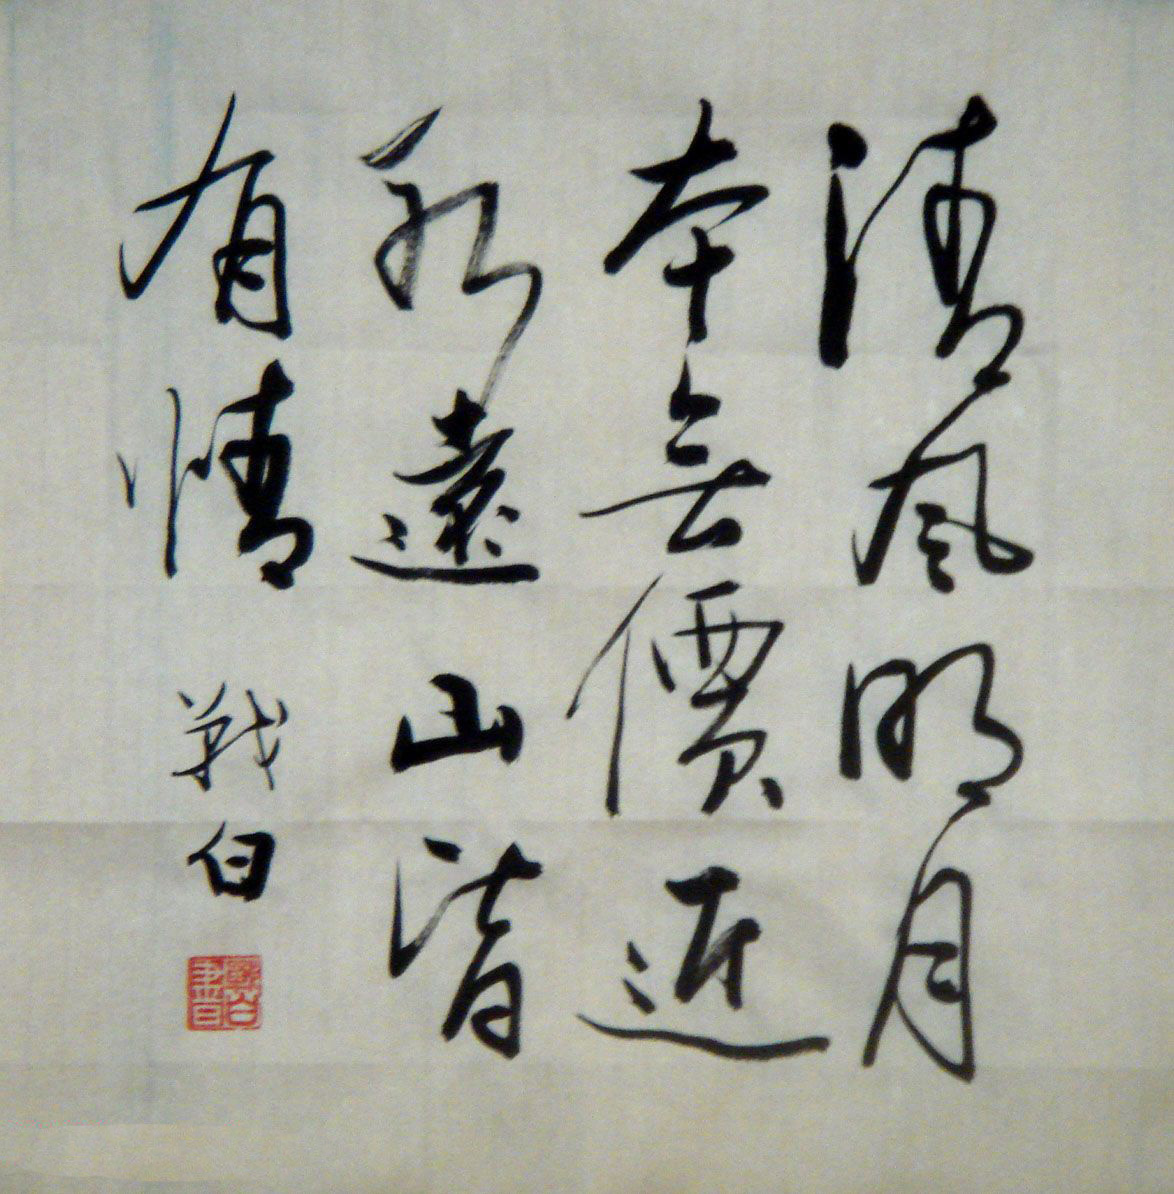 清風明月
本無價近
水遠山皆
有情
戰白